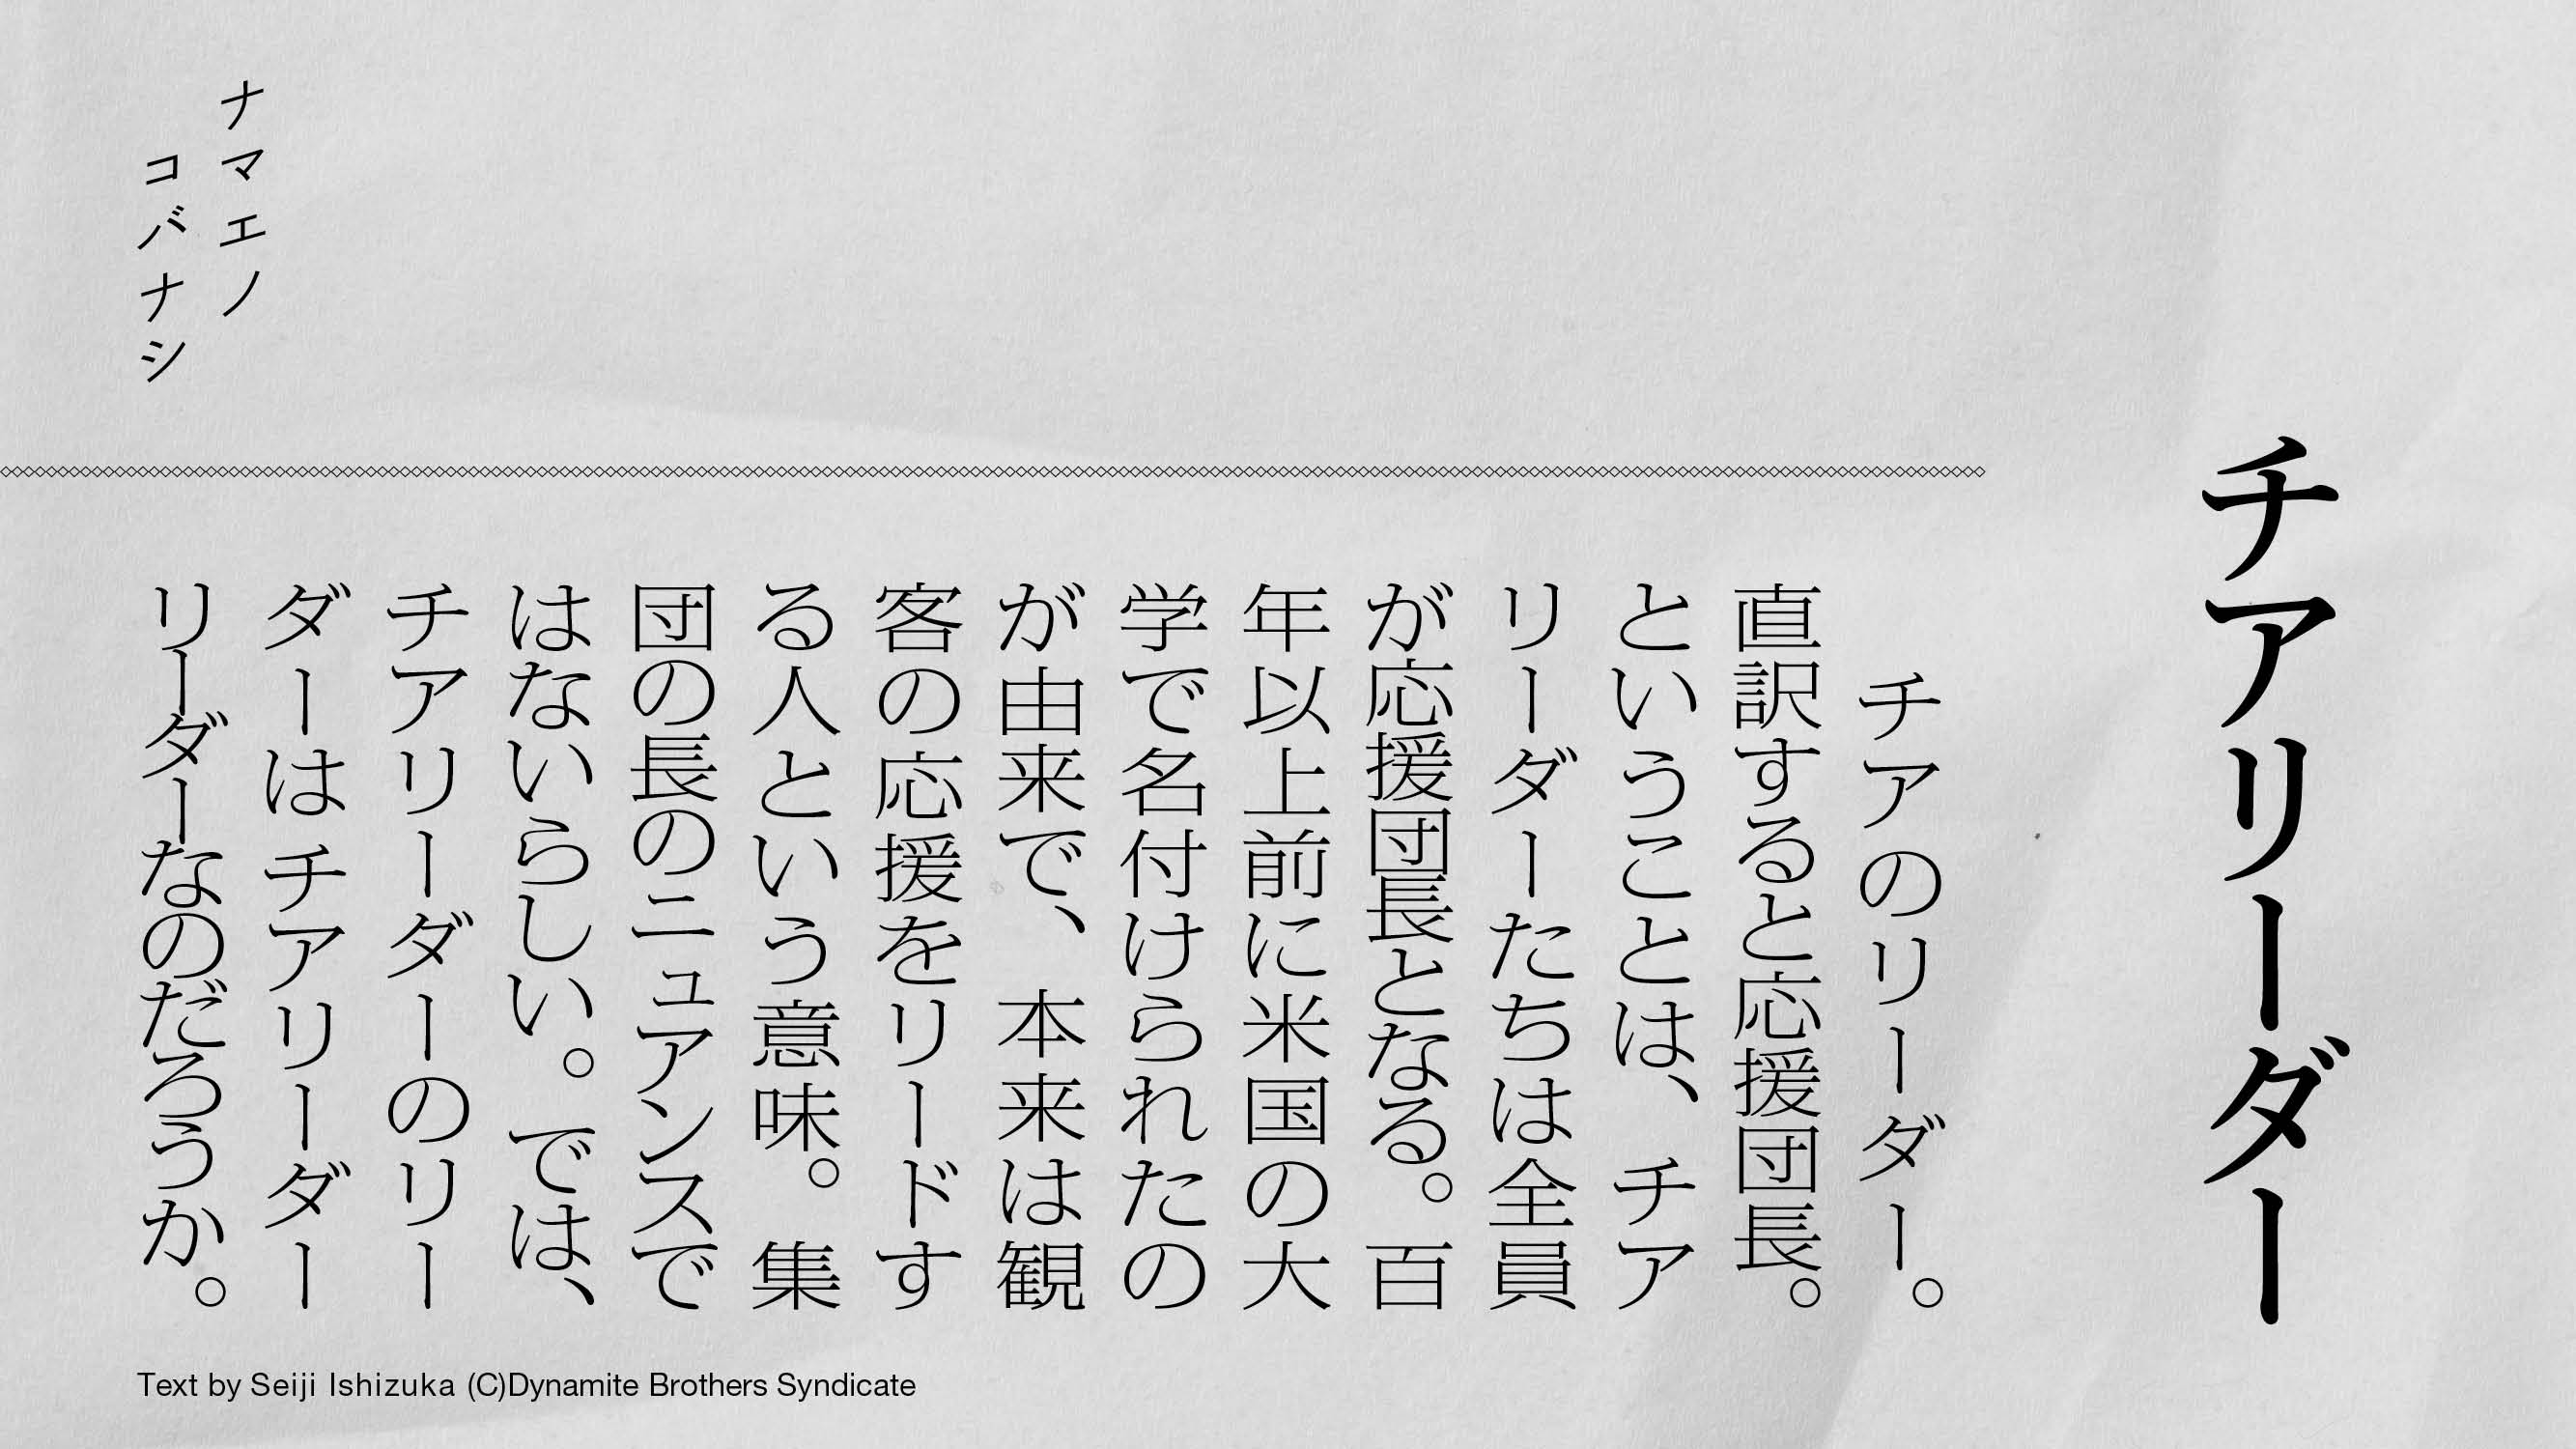 チアリーダー
チアのリーダー。
直訳すると応援団長。
ということは、チア
リーダーたちは全員
が応援団長となる。百
年以上前に米国の大
学で名付けられたの
が由来で、本来は観
客の応援をリードす
る人という意味。集
団の長のニュアンスで
はないらしい。では、
チアリーダーのリー
ダーはチアリーダー
リーダーなのだろうか。
ナマエノ
コバナシ
Text by Seiji Ishizuka (C)Dynamite Brothers Syndicate